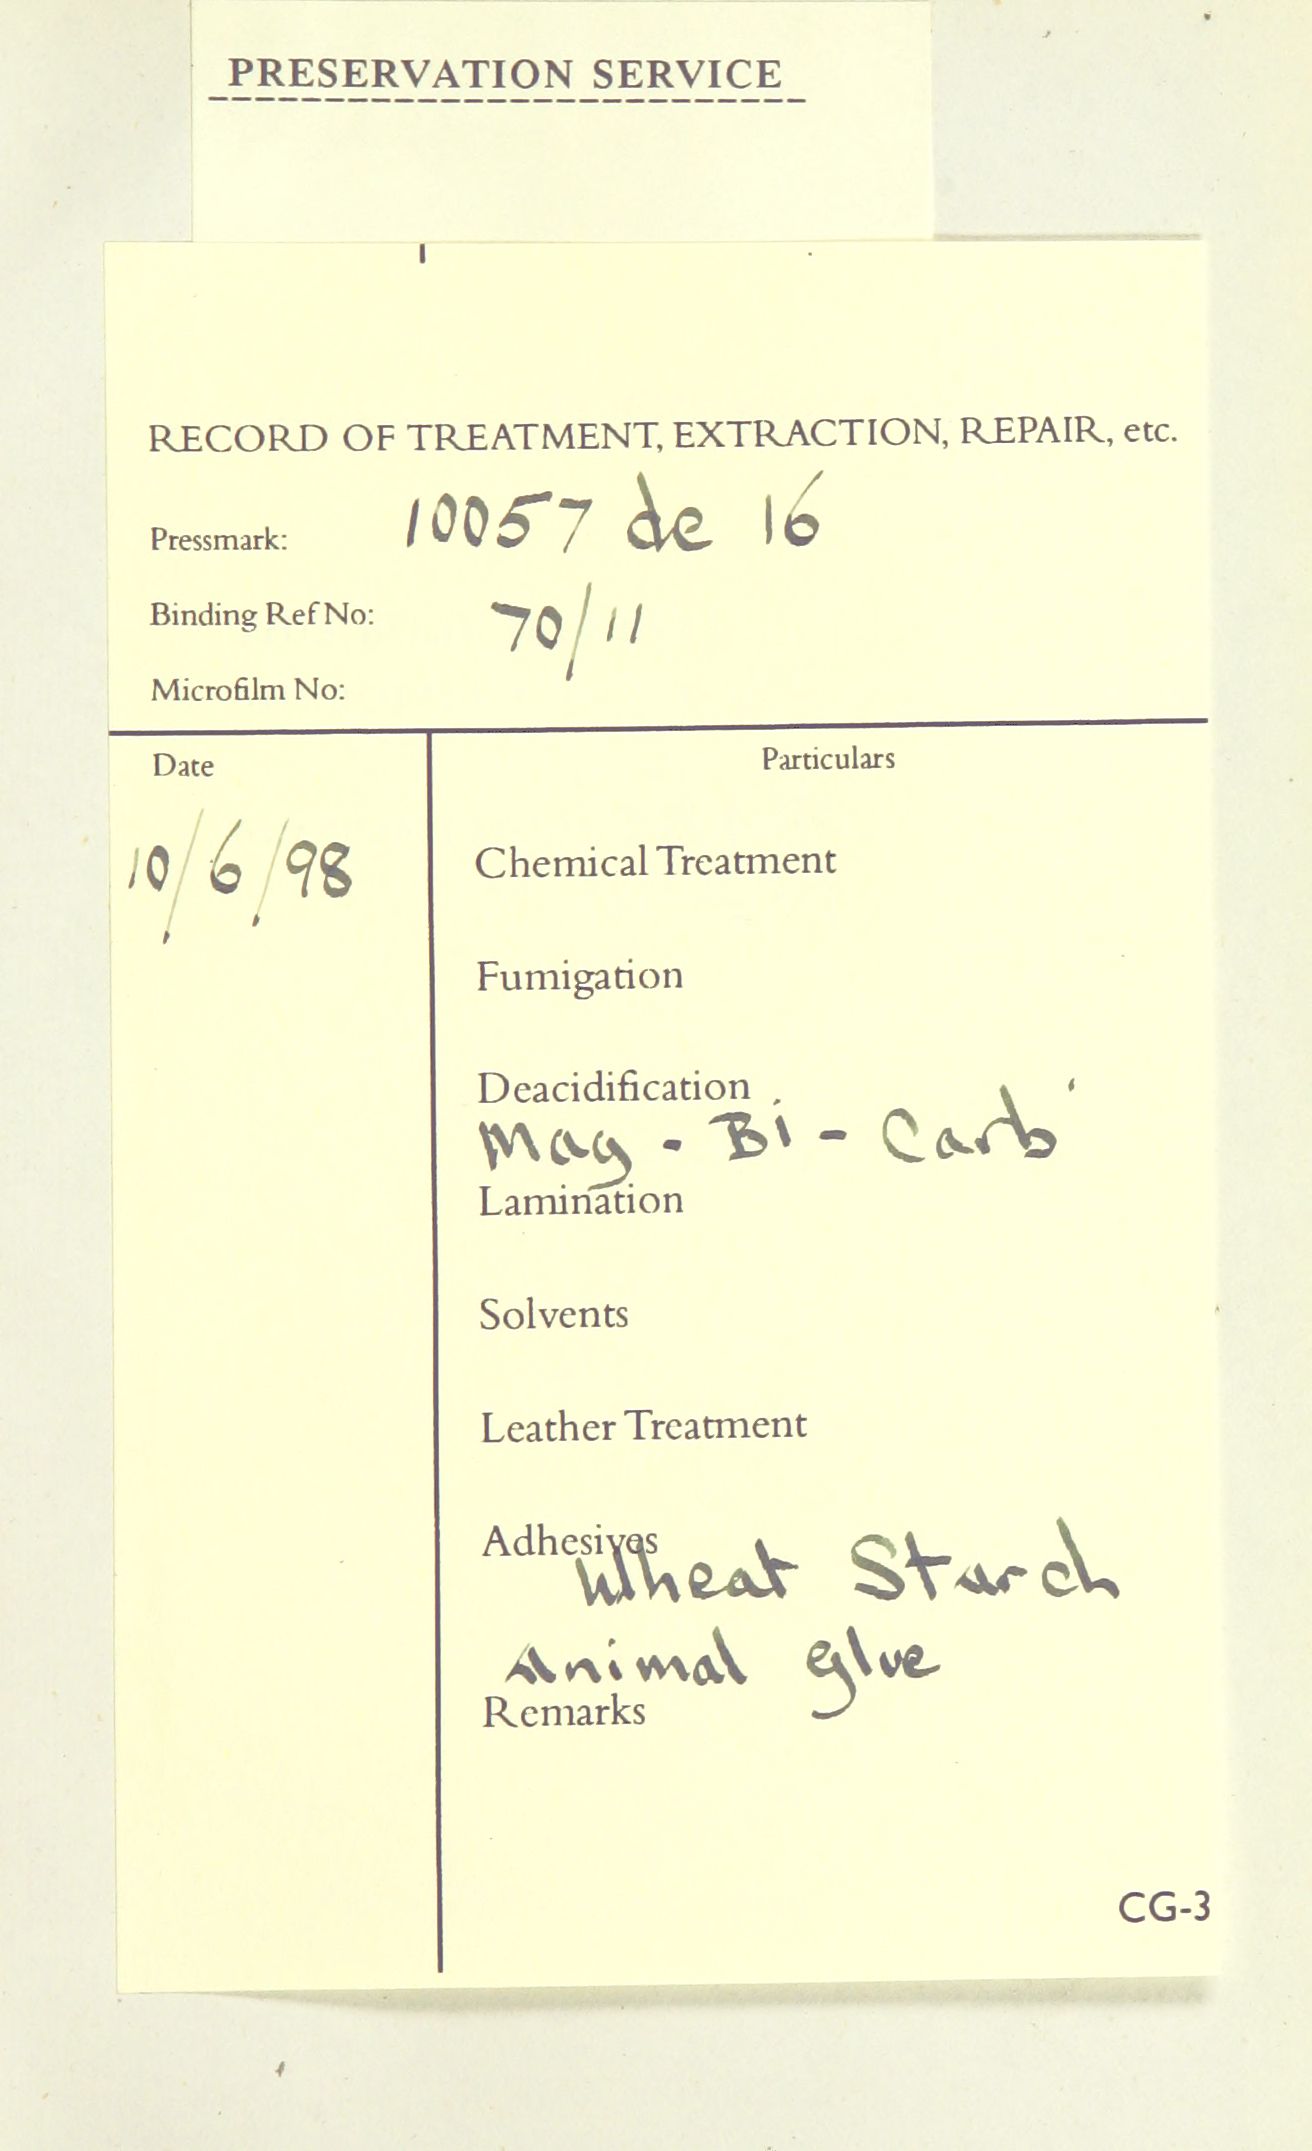 PRESERVATION SERVICE
RECORD OF TREATMENT, EXTRACTION, REPAIR, etc.
Pressmark: 10057 de 16
Binding Ref No: 70/11
Microfilm No:
Date Particulars
10/6/98 Chemical Treatment
Fumigation
Deacidification
Mag - Bi - Carb
Lamination
Solvents
Leather Treatment
Adhesives
Wheat Starch
Animal glue
Remarks
CG-3